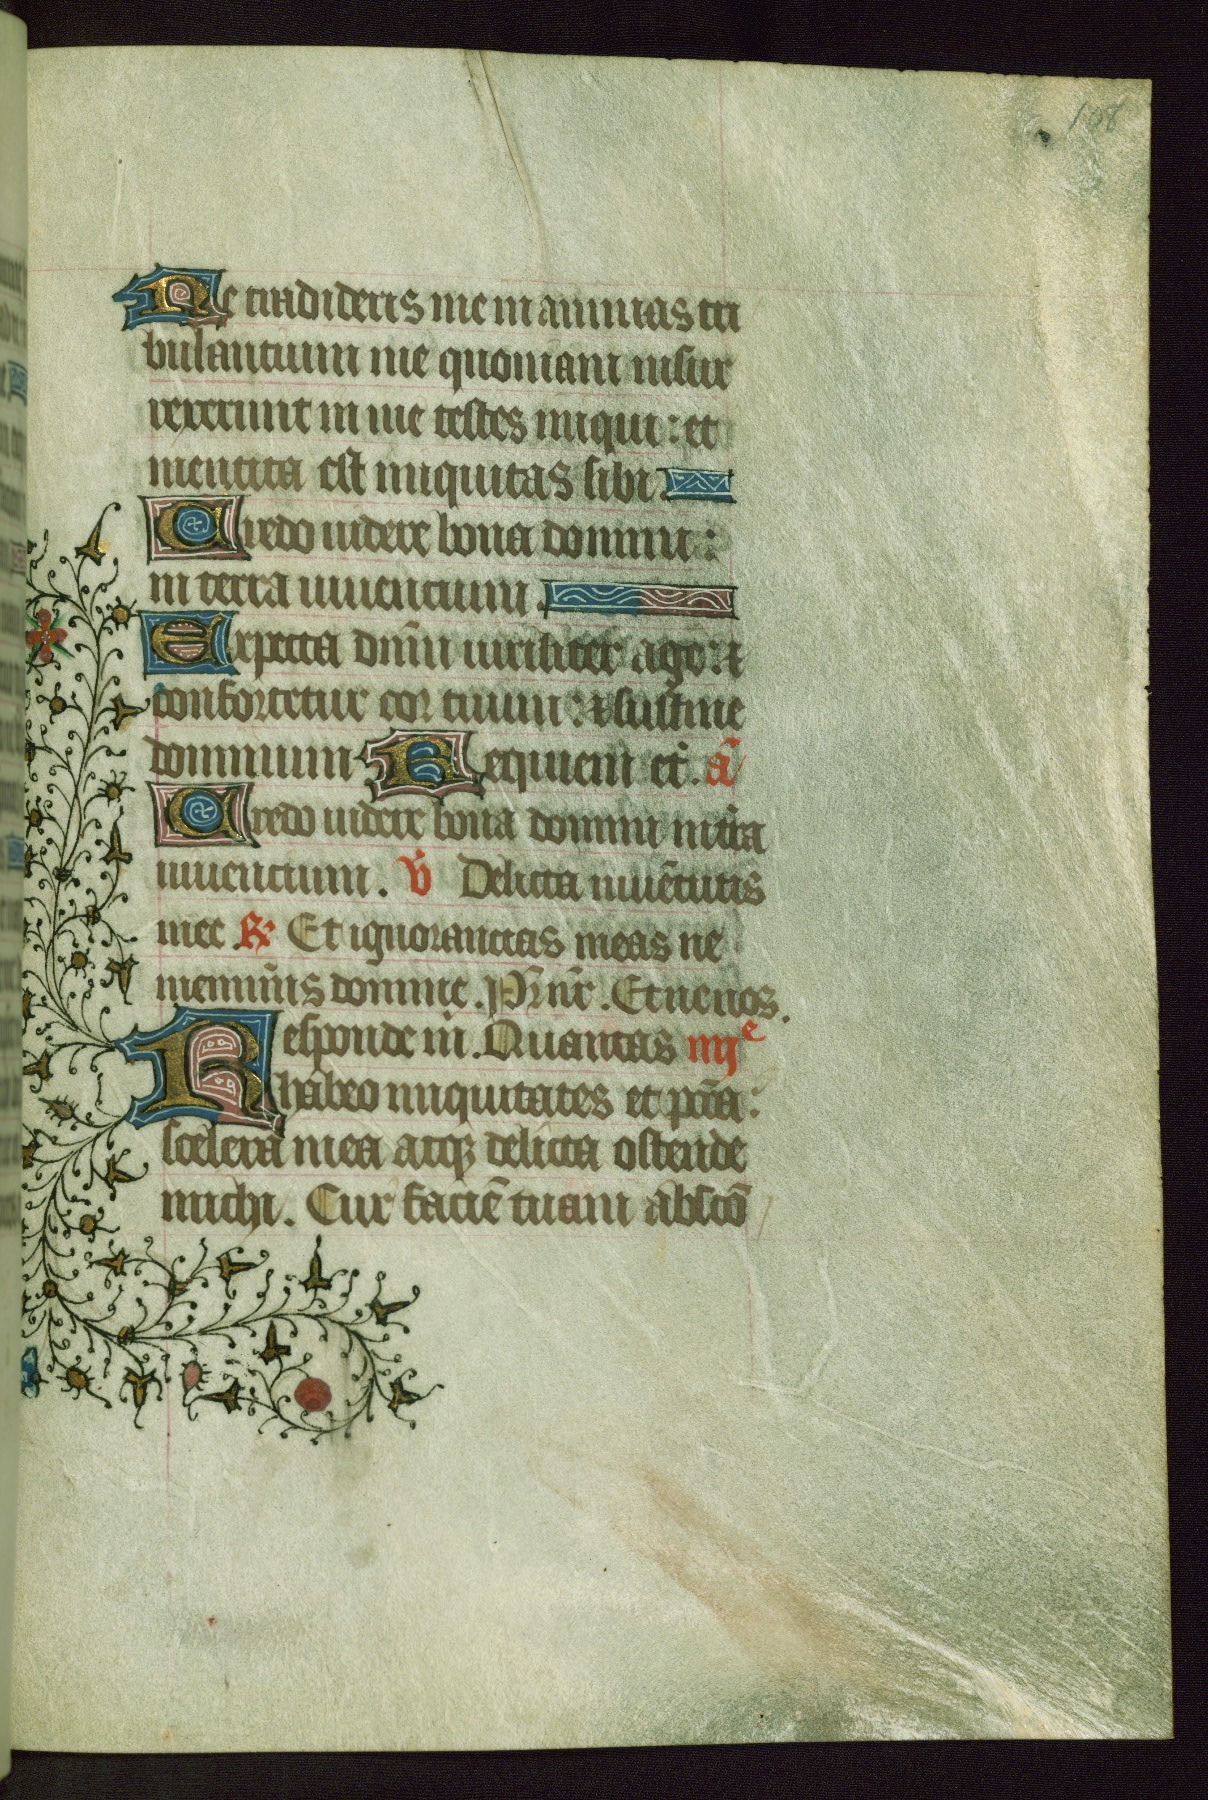 108
Ne tradideris me in animas tri
bulantium me quoniam insur
rexerunt in me testes iniqui : et
mentita est iniquitas sibi.
Credo uidere bona domini :
in terra uiuentium.
Expecta dn̄m uiriliter age : ⁊
confortetur cor tuum : ⁊ sustine
dominum Requiem et̉. a᷑
Credo uidere bona domini in t̉ra
uiuentium. v̉ Delicta iuuētutis
mee ℟ Et ignorantias meas ne
memin̉is domine. Pr̄ nr̄. Et ne nos.
Responde m̉. Quantas iiijᵉ
habeo iniquitates et pc̄ta :
scelera mea atqꝫ delicta ostende
michi. Cur faciē tuam absco᷑